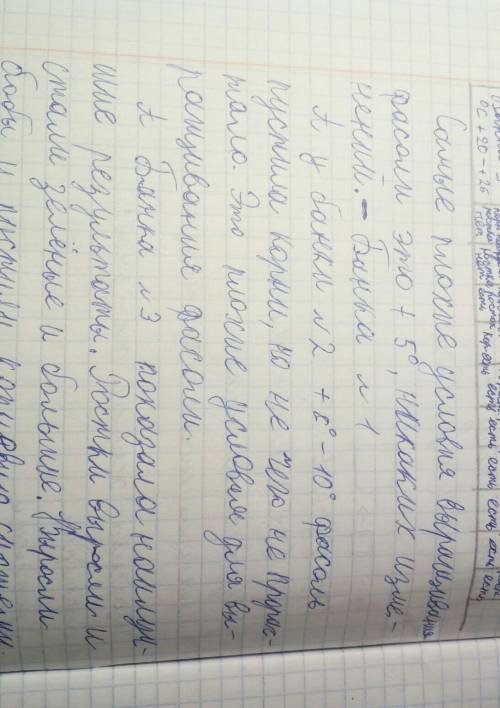 0С +20 - + 26
Самые плохие условия выращивания
фасоли это + 5°, никаких изме-
нений. - Банка № 1
А у банки № 2 + 8° - 10° фасоль
пустила корни, но не чего не прорас-
тало. Это плохие условия для вы-
ращивания фасоли.
А Банка № 3 показала наилуч-
шие результаты. Ростки выросли и
стали зелёные и большие. Выросли
бобы и пустили корневую систему.